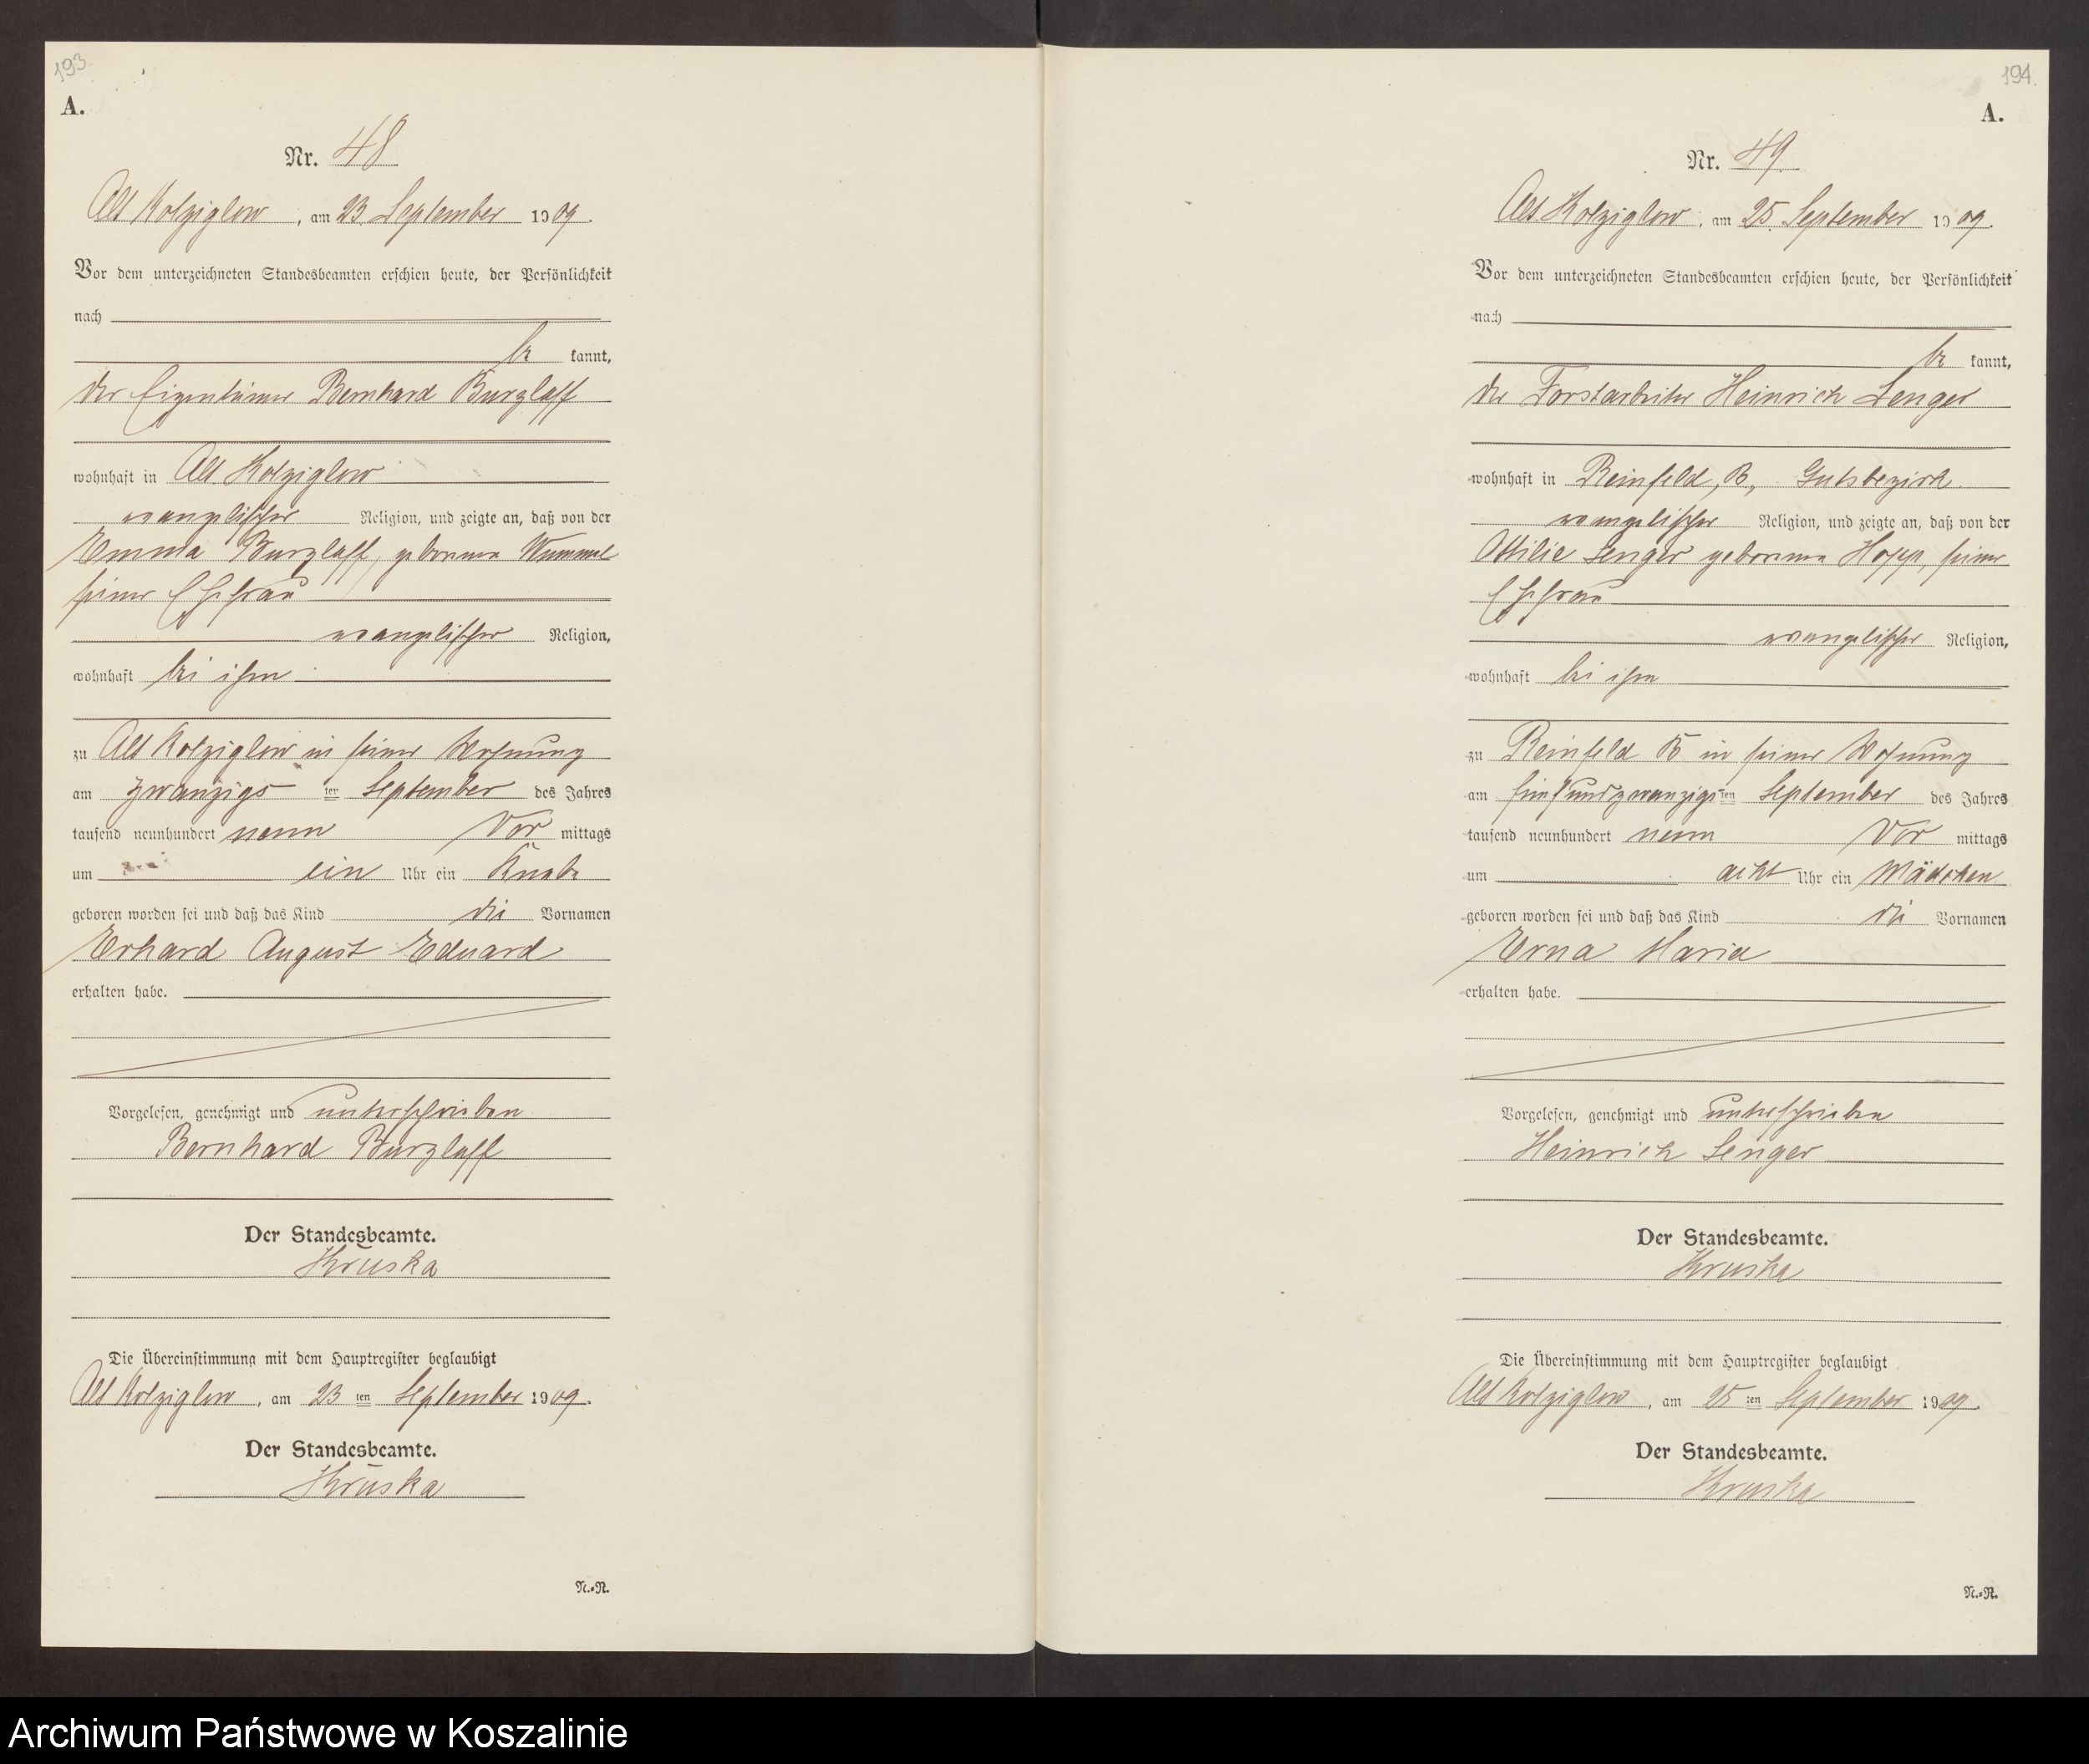 193.
A.
Nr. 48
Alt Kolziglow, am 23. September 1909.
Vor dem unterzeichneten Standesbeamten erschien heute, der Persönlichkeit
nach
be kannt,
der Eigentümer Bernhard Burzlaff
wohnhaft in Alt Kolziglow
evangelischer Religion, und zeigte an, daß von der
Emma Burzlaff, geborenen Wummel
seiner Ehefrau
evangelischer Religion,
wohnhaft bei ihm
zu Alt Kolziglow in seiner Wohnung
am zwanzigsten September des Jahres
tausend neunhundert neun Vor mittags
um ein Uhr ein Knabe
geboren worden sei und daß das Kind die Vornamen
Erhard August Eduard
erhalten habe.
Vorgelesen, genehmigt und unterschrieben
Bernhard Burzlaff
Der Standesbeamte.
Kruska
Die Übereinstimmung mit dem Hauptregister beglaubigt
Alt Kolziglow, am 23ten September 1909.
Der Standesbeamte.
Kruska
N.=R.
194.
A.
Nr. 49
Alt Kolziglow, am 25. September 1909.
Vor dem unterzeichneten Standesbeamten erschien heute, der Persönlichkeit
nach
be kannt,
der Forstarbeiter Heinrich Senger
wohnhaft in Reinfeld, B., Gutsbezirk
evangelischer Religion, und zeigte an, daß von der
Ottilie Senger geborenen Hopp, seiner
Ehefrau
evangelischer Religion,
wohnhaft bei ihm
zu Reinfeld B in seiner Wohnung
am fünfundzwanzigsten September des Jahres
tausend neunhundert neun Vor mittags
um acht Uhr ein Mädchen
geboren worden sei und daß das Kind die Vornamen
Erna Maria
erhalten habe.
Vorgelesen, genehmigt und unterschrieben
Heinrich Senger
Der Standesbeamte.
Kruska
Die Übereinstimmung mit dem Hauptregister beglaubigt
Alt Kolziglow, am 25ten September 1909.
Der Standesbeamte.
Kruska
N.=R.
Archiwum Państwowe w Koszalinie